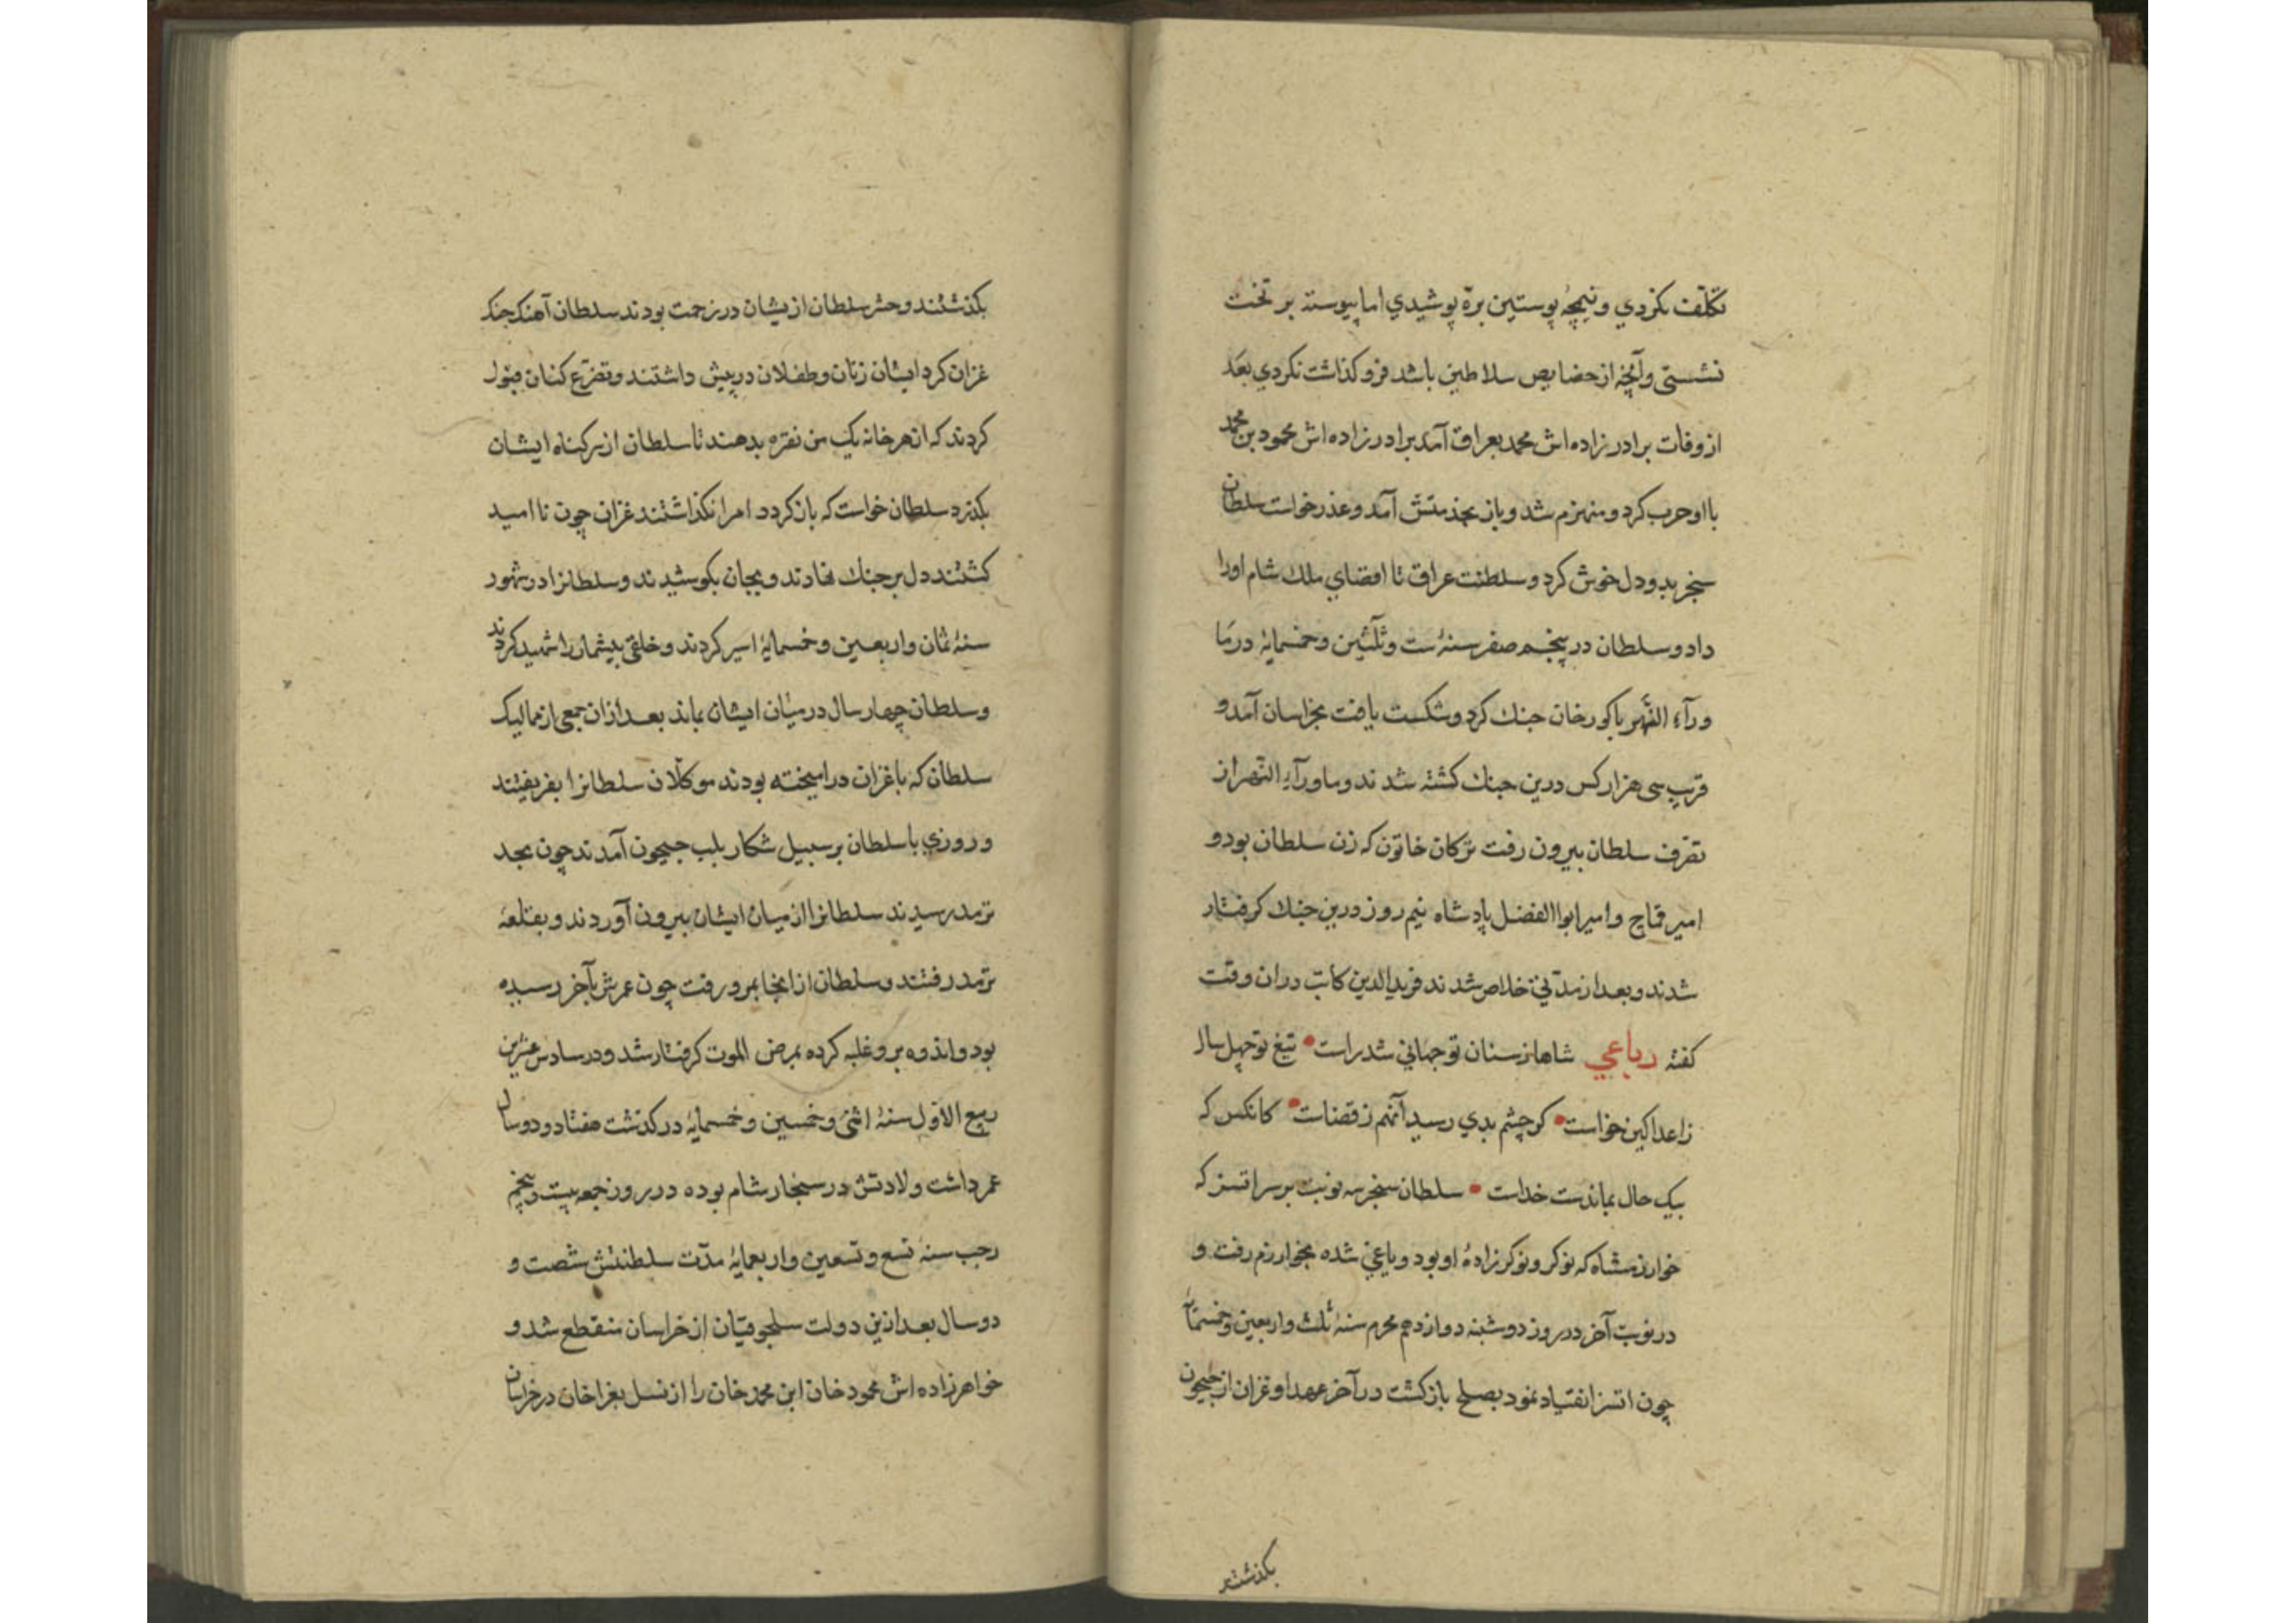 تکلّف نکردي و نیمچۀ پوستین برّه پوشیدي اما پیوسته بر تخت
نشستی و آنچه از خصایص سلاطین باشد فرو گذاشت نکردي بعد
از وفات برادر زاده اش محمد بعراق آمد برادر زاده اش محمود بن محمد
با او حرب کرد و منهزم شد و باز بخدمتش آمد و عذر خواست سلطان
سنجر بدو دل خوش کرد و سلطنت عراق تا اقصاي ملك شام اورا
داد و سلطان در پنجم صفر سنۀ ست و ثلثین و خمسمایۀ در ما
ورآء النّهر با کور خان جنك کرد و شکست یافت بخراسان آمد و
قرب سی هزار کس درین جنك کشته شدند و ماورآء النّهر از
تصرف سلطان بیرون رفت ترکان خاتون که زن سلطان بود و
امیر قماج و امیر ابوا الفضل پادشاه نیمروز درین جنك کرفتار
شدند و بعد از مدّتی خلاص شدند فرید الدین کاتب دران وقت
کفته رباعي شاها ز سنان تو جهانی شد راست • تیغ تو چهل سال
ز اعدا کین خواست • کر چشم بدي رسید آنهم ز قضاست • کانکس که
بیک حال بماندست خداست • سلطان سنجر سه نوبت بر سر اتسز که
خوارزمشاه که نوکر و نوکر زادۀ او بود و یاغی شده بخوارزم رفت و
در نوبت آخر در روز دوشنبه دوازدهم محرم سنۀ ثلث و اربعین و خمسمآ
چون اتسز انقیاد نمود بصلح باز کشت در آخر عهد او غزان از جیحون
بکذشتند
بکذشتند و حشر سلطان ازیشان در زحمت بودند سلطان آهنك جنك
غزان کرد ایشان زنان و طفلان در پیش داشتند و تضرّع کنان قبول
کردند که از هر خانه یک من نقره بدهند تا سلطان از سر کناه ایشان
بکذرد سلطان خواست که باز کردد امرا نکذاشتند غزان چون نا امید
کشتند دل بر جنك نهادند و بجان بکوشیدند و سلطانرا در شهور
سنۀ ثمان و اربعین و خمسمایۀ اسیر کردند و خلقی بیشمار را شهید کردند
و سلطان چهار سال در میان ایشان بماند بعد ازان جمعی از ممالیک
سلطان که با غزان در امیخته بودند موکلان سلطانرا بفریفتند
و روزي با سلطان بر سبیل شکار بلب جیحون آمدند چون بحد
ترمد رسیدند سلطانرا از میان ایشان بیرون آوردند و بقلعۀ
ترمد رفتند و سلطان از انجا بمرو رفت چون عمرش بآخر رسیده
بود و اندوه برو غلبه کرده بمرض الموت کرفتار شد و در سادس عشرین
ربیع الاوّل سنۀ اثنی و خمسین و خمسمایۀ در کذشت هفتاد و دو سال
عمر داشت ولادتش در سنجار شام بوده در روز جمعه بیست و پنجم
رجب سنۀ تسع و تسعین و اربعمایۀ مدّت سلطنتش شصت و
دو سال بعد ازین دولت سلجوقیان از خراسان منقطع شد و
خواهر زاده اش محمود خان ابن محمد خان را از نسل بغرا خان در خراسان